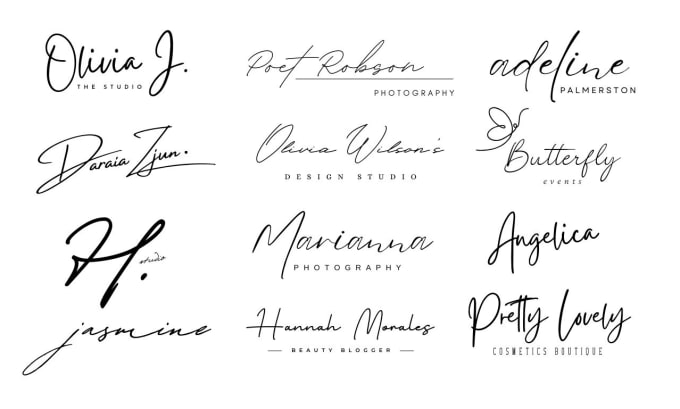 Olivia J.
THE STUDIO
Poet Robson
PHOTOGRAPHY
adeline
PALMERSTON
Daraia Zjun.
Olivia Wilson's
DESIGN STUDIO
Butterfly
events
H.
studio
Marianna
PHOTOGRAPHY
Angelica
jasmine
Hannah Morales
BEAUTY BLOGGER
Pretty Lovely
COSMETICS BOUTIQUE